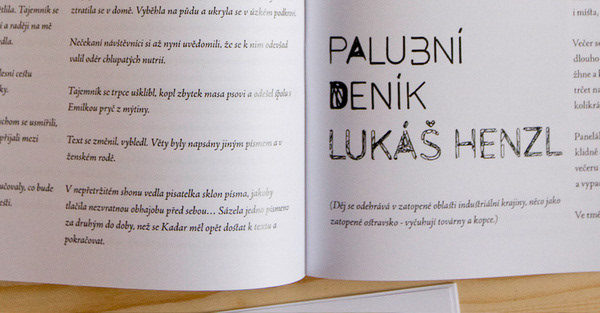 ětlila. Tajemník se
í a raději na mě
edla.
lesní cestu
ky.
ychom se usmířili,
přijali mezi
učovaly, co bude
eští.
ztratila se v domě. Vyběhla na půdu a ukryla se v úzkém podkroví.
Nečekaní návštěvníci si až nyní uvědomili, že se k nim odevšad
valil odér chlupatých nutrií.
Tajemník se trpce ušklíbl, kopl zbytek masa psovi a odešel spolu s
Emilkou pryč z mýtiny.
Text se změnil, vybledl. Věty byly napsány jiným písmem a v
ženském rodě.
V nepřetržitém shonu vedla pisatelka sklon písma, jakoby
tlačila nezvratnou obhajobu před sebou... Sázela jedno písmeno
za druhým do doby, než se Kadar měl opět dostat k textu a
pokračovat.
PALUBNÍ
DENÍK
LUKÁŠ HENZL
(Děj se odehrává v zatopené oblasti industriální krajiny, něco jako
zatopené ostravsko - vyčuhují továrny a kopce.)
i místa,
Večer se
dlouho
žhne a k
trčet na
kolikrá
Panelá
klidně
večeru
a vypa
Ve tmě